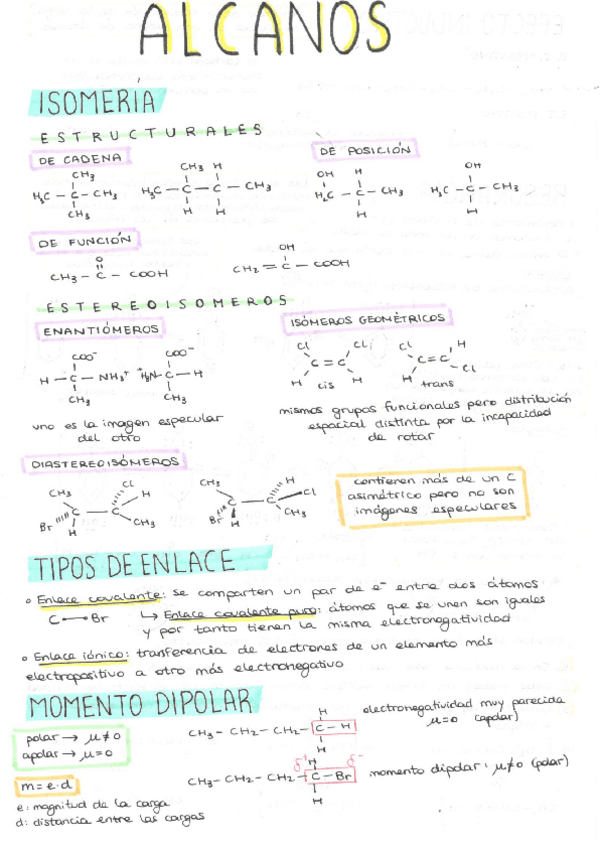 ALCANOS
ISOMERÍA
ESTRUCTURALES
DE CADENA
CH₃
H₃C — C — CH₃
CH₃
CH₃ H
H₃C — C — C — CH₃
H H
DE POSICIÓN
OH H
H₂C — C — CH₃
H
OH
H₃C — C — CH₃
H
DE FUNCIÓN
O
CH₃ — C — COOH
OH
CH₂ = C — COOH
ESTEREOISOMEROS
ENANTIÓMEROS
COO⁻
H — C — NH₃⁺
CH₃
COO⁻
⁺H₃N — C — H
CH₃
uno es la imagen especular
del otro
ISÓMEROS GEOMÉTRICOS
Cl Cl
C = C
H cis H
Cl H
C = C
H trans Cl
mismos grupos funcionales pero distribución
espacial distinta por la incapacidad
de rotar
DIASTEREOISÓMEROS
CH₃ Cl
C — C H
Br H CH₃
CH₃ H
C — C Cl
Br H CH₃
contienen más de un C
asimétrico pero no son
imágenes especulares
TIPOS DE ENLACE
Enlace covalente: se comparten un par de e⁻ entre dos átomos
C — Br ↳ Enlace covalente puro: átomos que se unen son iguales
y por tanto tienen la misma electronegatividad
Enlace iónico: tranferencia de electrones de un elemento más
electropositivo a otro más electronegativo
MOMENTO DIPOLAR
polar → μ ≠ 0
apolar → μ = 0
m = e · d
e: magnitud de la carga
d: distancia entre las cargas
H
CH₃ - CH₂ - CH₂ - CH₂ - C - H
H
electronegatividad muy parecida
μ = 0 (apolar)
δ⁺ H δ⁻
CH₃ - CH₂ - CH₂ - CH₂ - C - Br
H
momento dipolar: μ ≠ 0 (polar)